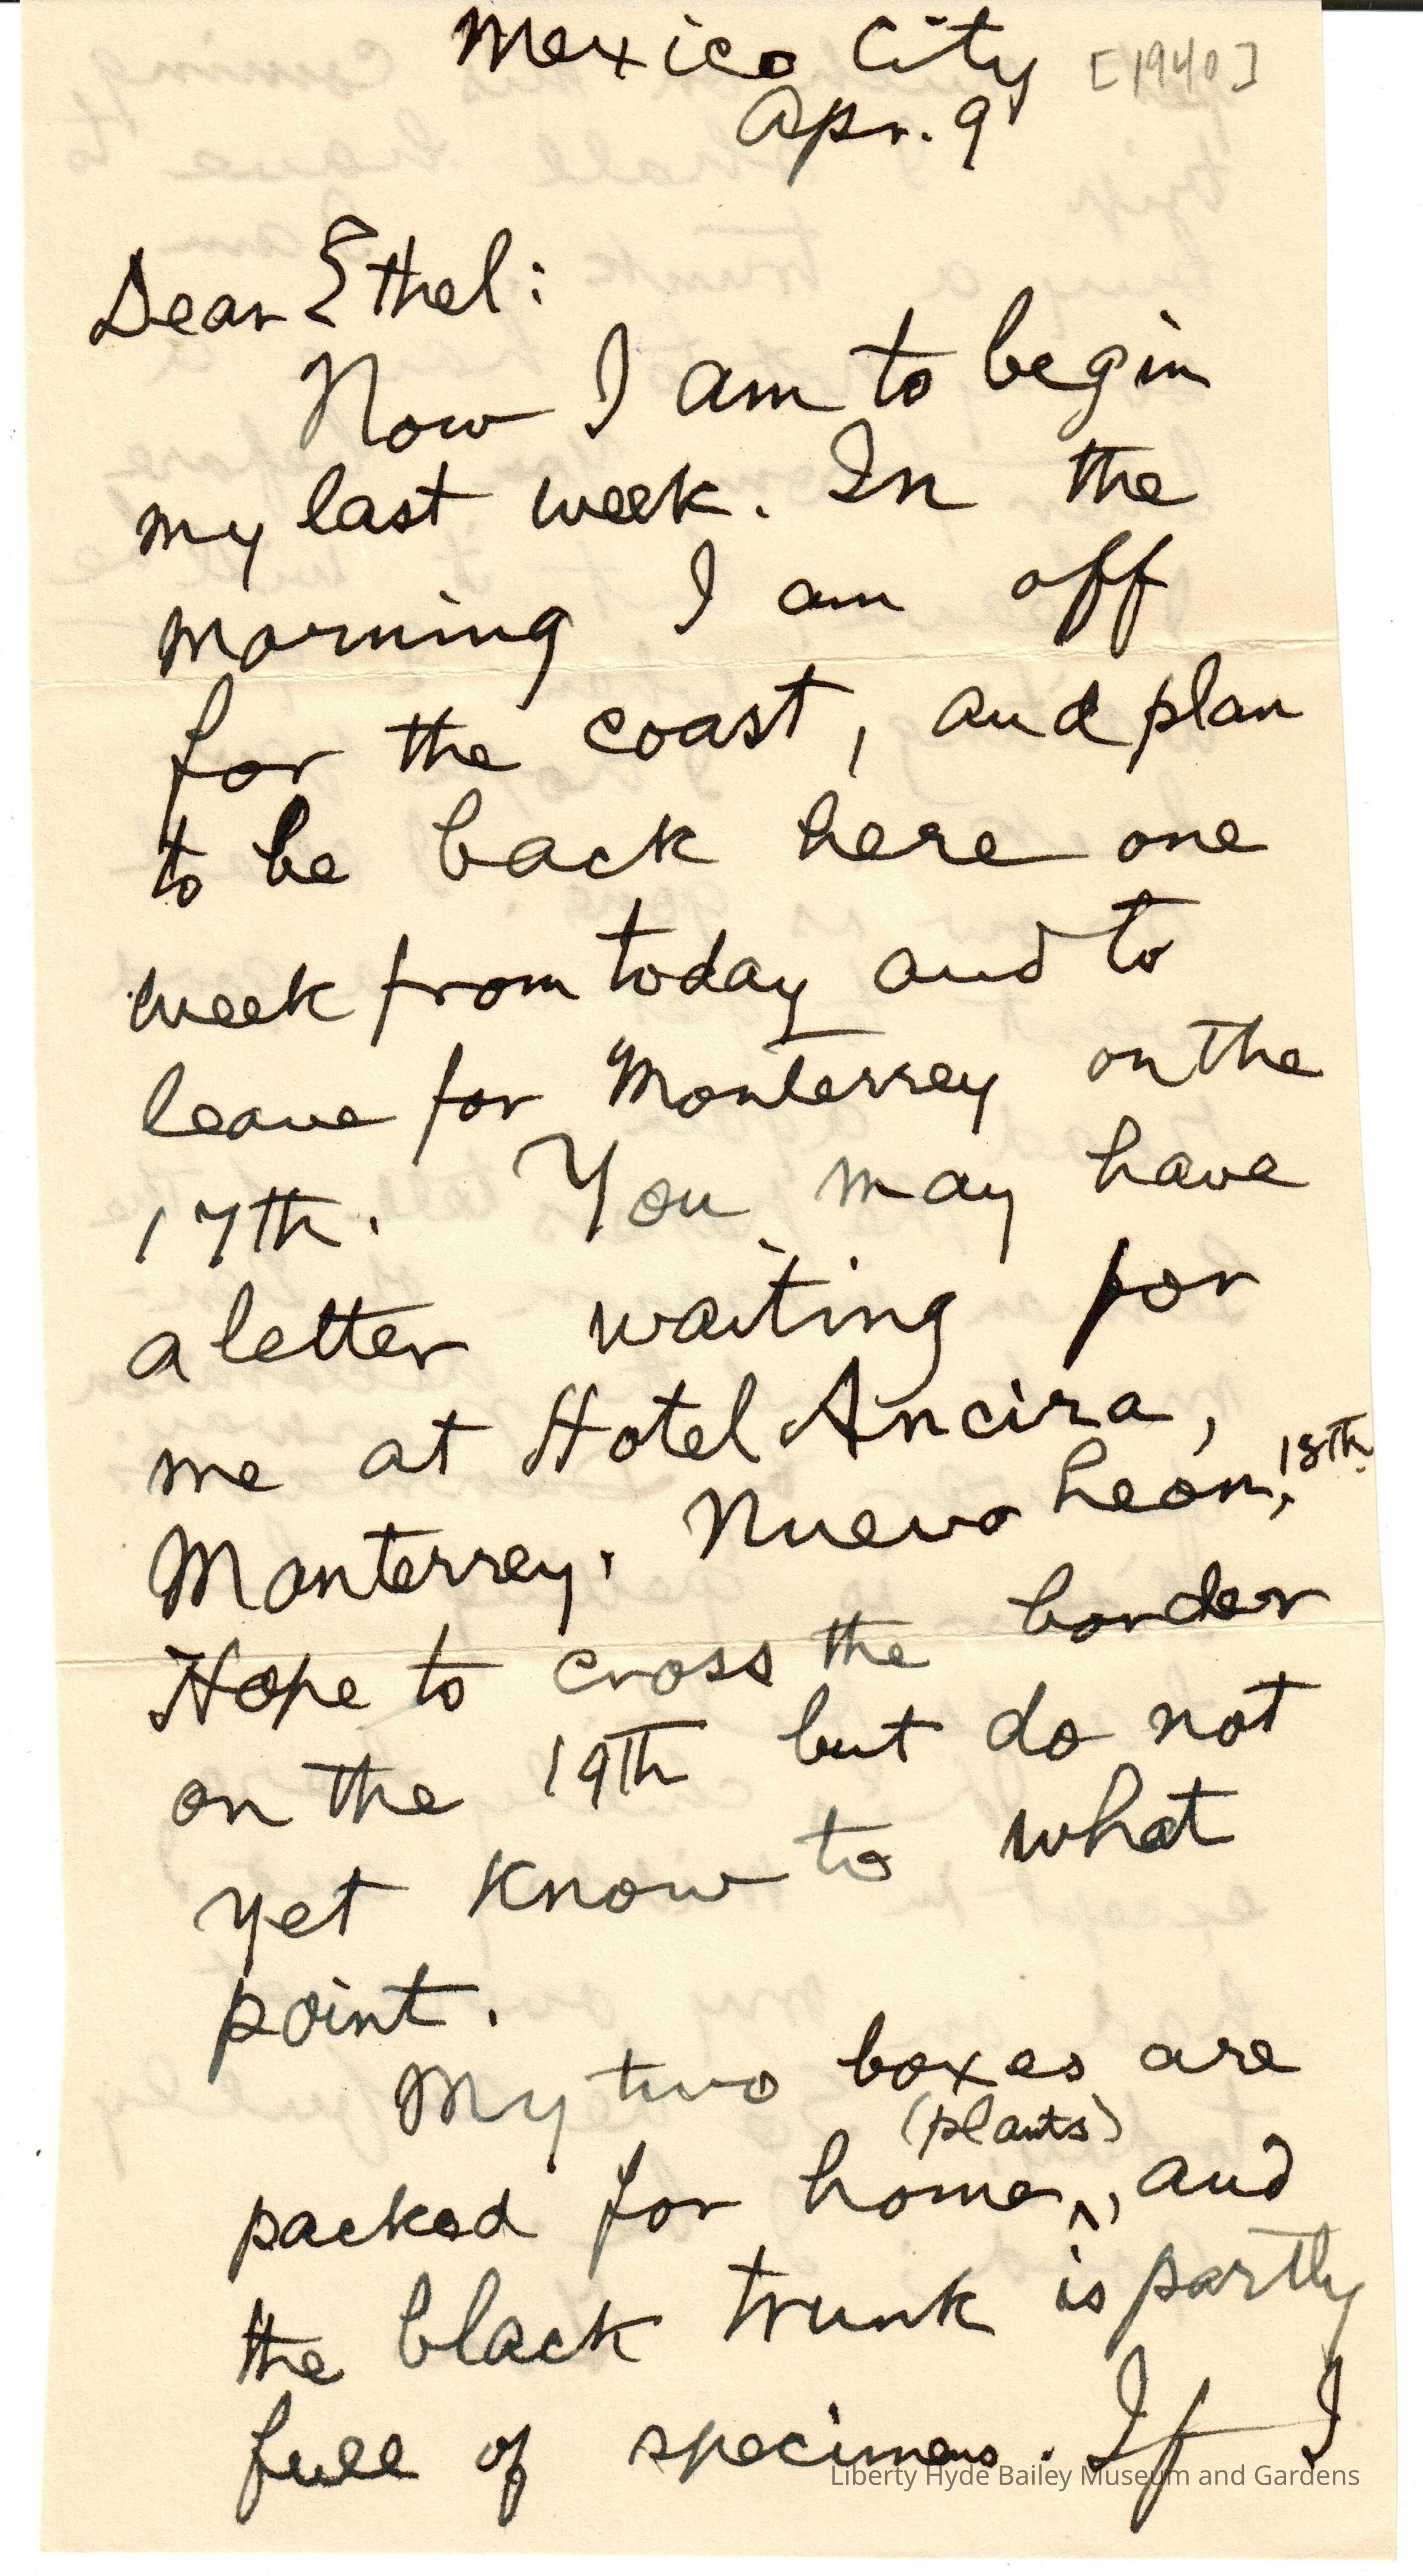 Mexico City [1940]
Apr. 9
Dear Ethel:
Now I am to begin
my last week. In the
morning I am off
for the coast, and plan
to be back here one
week from today and to
leave for Monterrey on the
17th. You may have
a letter waiting for
me at Hotel Ancira,
Monterrey, Nuevo Leon, 18th.
Hope to cross the border
on the 19th but do not
yet know to what
point.
My two boxes are
(plants)
packed for home ^, and
the black trunk is partly
full of specimens. If I
Liberty Hyde Bailey Museum and Gardens